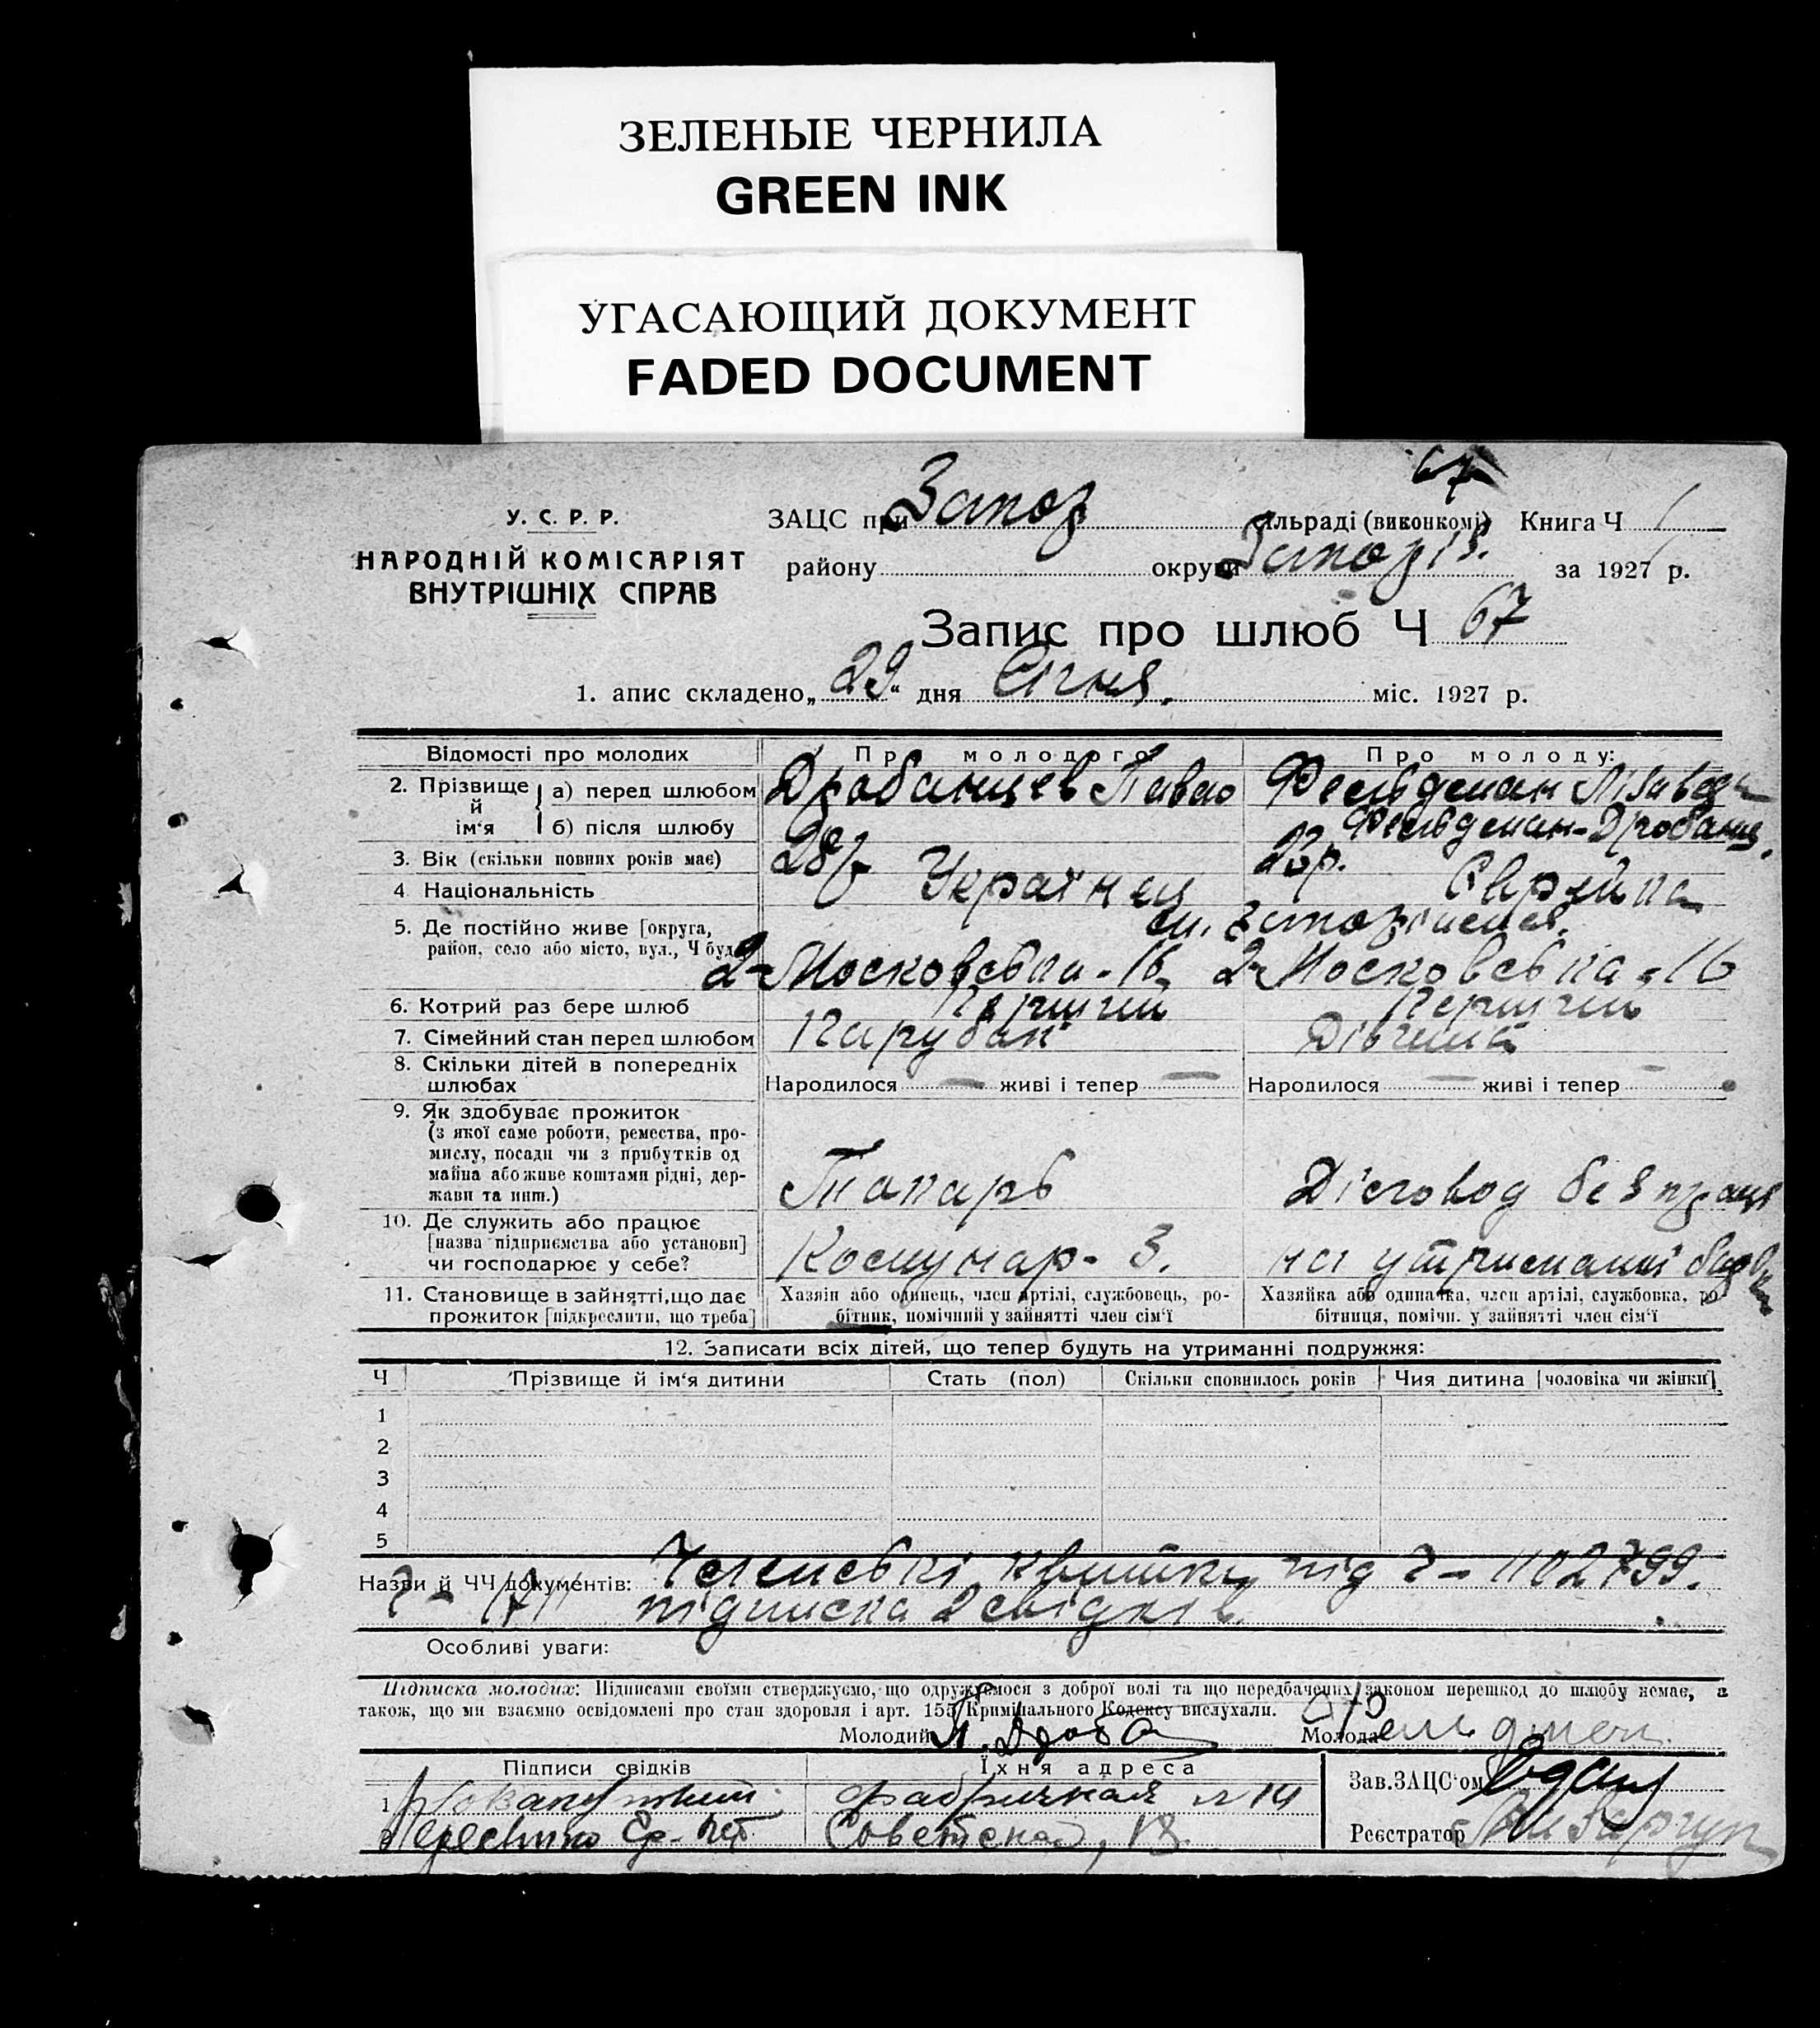 ЗЕЛЕНЫЕ ЧЕРНИЛА
GREEN INK
УГАСАЮЩИЙ ДОКУМЕНТ
FADED DOCUMENT
67
У. С. Р. Р.
НАРОДНІЙ КОМІСАРІЯТ
ВНУТРІШНІХ СПРАВ
ЗАЦС при Запоз ільраді (виконкомі) Книга Ч
району округи Запоріз. за 1927 р.
Запис про шлюб Ч 67
1. апис складено „29“ дня Січня міс. 1927 р.
Відомості про молодих Про молодого Про молоду:
2. Прізвище й ім‘я а) перед шлюбом Дробанцев Павло Фельдман Лізавета
б) після шлюбу Фельдман-Дробанц.
3. Вік (скільки повних років має) 28 р. 23 р.
4 Національність Українец Єврейка
5. Де постійно живе [округа, м. Запоріжжя.
район, село або місто, вул., Ч буд 2-Московська-16 2-Московська-16
6. Котрий раз бере шлюб Перший Перший
7. Сімейний стан перед шлюбом Парубак Дівчина
8. Скільки дітей в попередніх
шлюбах Народилося — живі і тепер — Народилося — живі і тепер
9. Як здобуває прожиток
(з якої саме роботи, ремества, про-
мислу, посади чи з прибутків од
майна або живе коштами рідні, дер-
жави та инш.) Токарь Діловод без праці
10. Де служить або працює
[назва підприємства або установи]
чи господарює у себе? Комунар-З. на утриманні
11. Становище в зайнятті, що дає Хазяін або одинець, член артілі, службовець, ро- Хазяйка або одиначка, член артілі, службовка, ро
прожиток [підкреслити, що треба] бітник, помічний у зайнятті член сім‘ї бітниця, помічн. у зайнятті член сім‘ї
12. Записати всіх дітей, що тепер будуть на утриманні подружжя:
Ч Прізвище й ім‘я дитини Стать (пол) Скільки сповнилось років Чия дитина [чоловіка чи жінки]
1
2
3
4
5
Назви й ЧЧ документів: Членські квитки під Ч- 1102799.
підписка 2 свідків.
Особливі уваги:
Підписка молодих: Підписами своїми стверджуємо, що одружуємося з доброї волі та що передбачених законом перешкод до шлюбу немає, а
також, що ми взаємно освідомлені про стан здоровля і арт. 155 Кримінального Кодексу вислухали.
Молодий П. Дроба Молода Фельдман.
Підписи свідків Їхня адреса Зав. ЗАЦС‘ом
1 Фабричная № 14
2 Советская, 13. Реєстратор